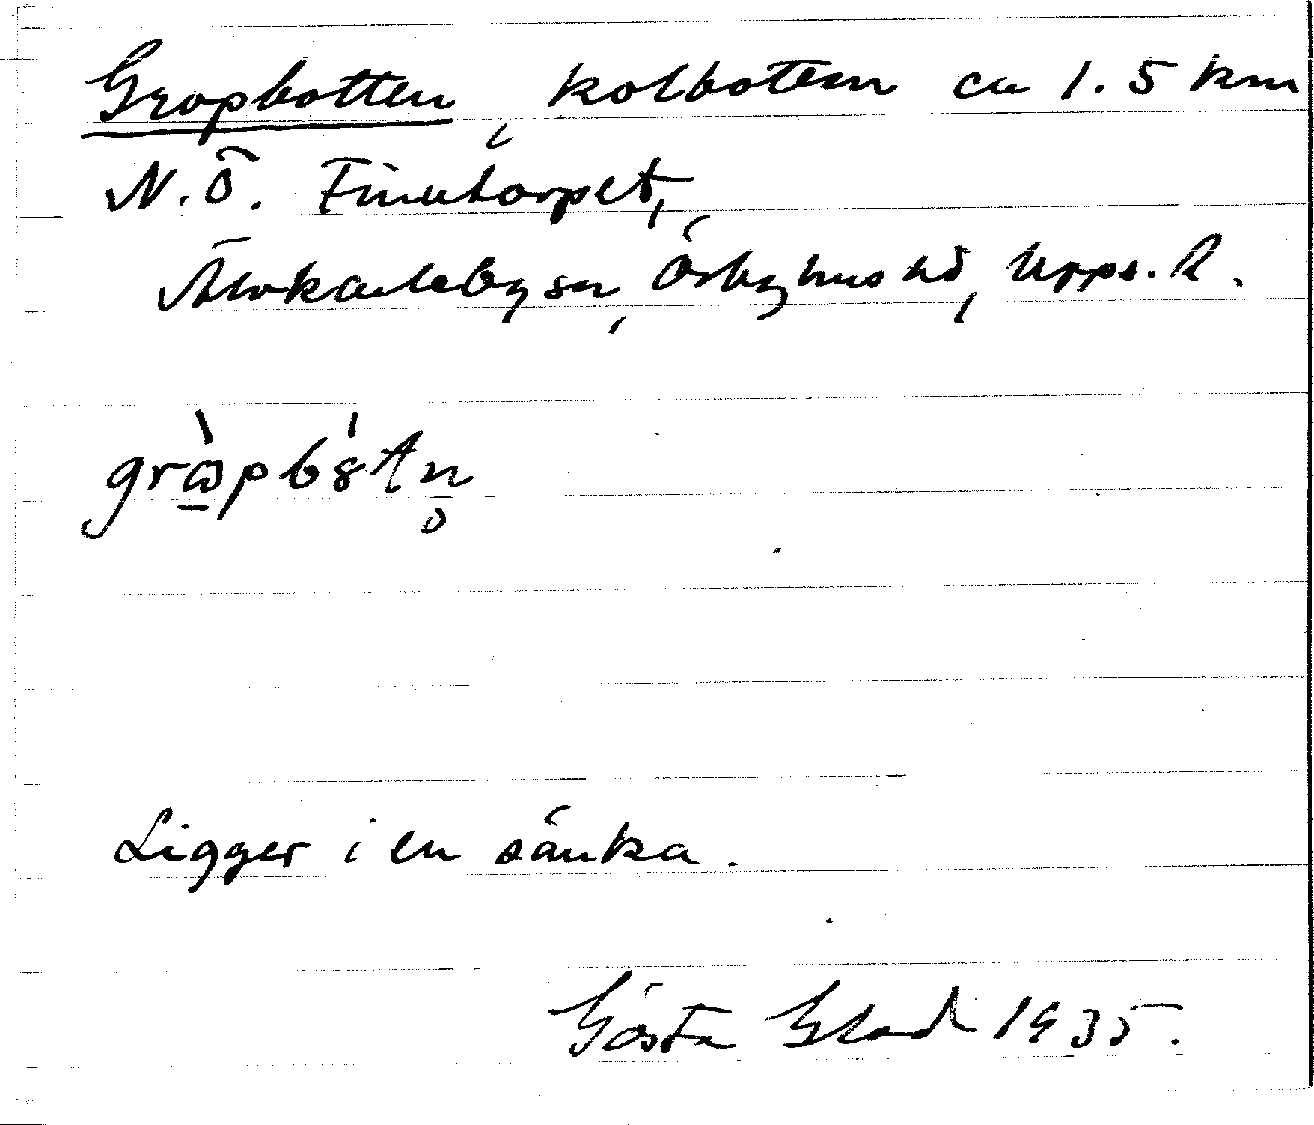 Gropbotten, kolbotten ca 1.5 km
N.Ö. Finntorpet,
Älvkarleby sn, Örbyhus hd, Upps. l.
grɷ̀pbɤ́tn̥
Ligger i en sänka.
Gösta Glad 1935.